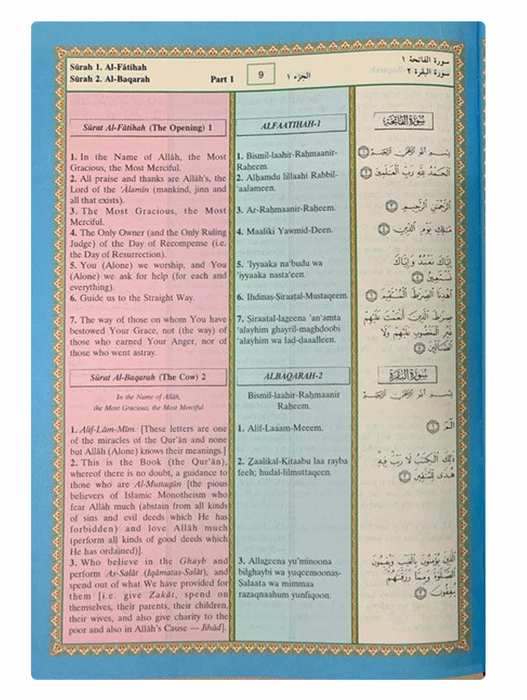 Sūrah 1. Al-Fātihah
Sūrah 2. Al-Baqarah
Part 1
9
الجزء ١
سورة الفاتحة ١
سورة البقرة ٢
Sūrat Al-Fātihah (The Opening) 1
1. In the Name of Allâh, the Most
Gracious, the Most Merciful.
2. All praise and thanks are Allâh's, the
Lord of the 'Âlamîn (mankind, jinn and
all that exists).
3. The Most Gracious, the Most
Merciful.
4. The Only Owner (and the Only Ruling
Judge) of the Day of Recompense (i.e.
the Day of Resurrection).
5. You (Alone) we worship, and You
(Alone) we ask for help (for each and
everything).
6. Guide us to the Straight Way.
7. The way of those on whom You have
bestowed Your Grace, not (the way) of
those who earned Your Anger, nor of
those who went astray.
Sūrat Al-Baqarah (The Cow) 2
In the Name of Allâh,
the Most Gracious, the Most Merciful
1. Alif-Lâm-Mîm. [These letters are one
of the miracles of the Qur'ân and none
but Allâh (Alone) knows their meanings.]
2. This is the Book (the Qur'ân),
whereof there is no doubt, a guidance to
those who are Al-Muttaqûn [the pious
believers of Islamic Monotheism who
fear Allâh much (abstain from all kinds
of sins and evil deeds which He has
forbidden) and love Allâh much
(perform all kinds of good deeds which
He has ordained)].
3. Who believe in the Ghayb and
perform As-Salât (Iqâmatas-Salât), and
spend out of what We have provided for
them [i.e. give Zakât, spend on
themselves, their parents, their children,
their wives, and also give charity to the
poor and also in Allâh's Cause — Jihâd].
ALFAATIḤAH-1
1. Bismil-laahir-Raḥmaanir-
Raḥeem.
2. Alḥamdu lillaahi Rabbil-
'aalameen.
3. Ar-Raḥmaanir-Raḥeem.
4. Maaliki Yawmid-Deen.
5. 'Iyyaaka na'budu wa
'iyyaaka nasta'een.
6. Ihdinaṣ-Ṣiraatal-Mustaqeem.
7. Ṣiraatal-laẕeena an'amta
'alayhim ghayril-maghdoobi
'alayhim wa lad-daaalleen.
ALBAQARAH-2
Bismil-laahir-Raḥmaanir
Raḥeem.
1. Alif-Laaam-Meeem.
2. Ẕaalikal-Kitaabu laa rayba
feeh; hudal-lilmuttaqeen.
3. Allaẕeena yu'minoona
bilghaybi wa yuqeemoonaṣ-
Ṣalaata wa mimmaa
razaqnaahum yunfiqoon.
سُورَةُ الفَاتِحَةِ
بِسْمِ اللَّهِ الرَّحْمَٰنِ الرَّحِيمِ ١
الْحَمْدُ لِلَّهِ رَبِّ الْعَالَمِينَ ٢
الرَّحْمَٰنِ الرَّحِيمِ ٣
مَالِكِ يَوْمِ الدِّينِ ٤
إِيَّاكَ نَعْبُدُ وَإِيَّاكَ
نَسْتَعِينُ ٥
اهْدِنَا الصِّرَاطَ الْمُسْتَقِيمَ ٦
صِرَاطَ الَّذِينَ أَنْعَمْتَ عَلَيْهِمْ
غَيْرِ الْمَغْضُوبِ عَلَيْهِمْ وَلَا
الضَّالِّينَ ٧
سُورَةُ البَقَرَةِ
بِسْمِ اللَّهِ الرَّحْمَٰنِ الرَّحِيمِ
الم ١
ذَٰلِكَ الْكِتَابُ لَا رَيْبَ فِيهِ
هُدًى لِلْمُتَّقِينَ ٢
الَّذِينَ يُؤْمِنُونَ بِالْغَيْبِ وَيُقِيمُونَ
الصَّلَاةَ وَمِمَّا رَزَقْنَاهُمْ
يُنْفِقُونَ ٣